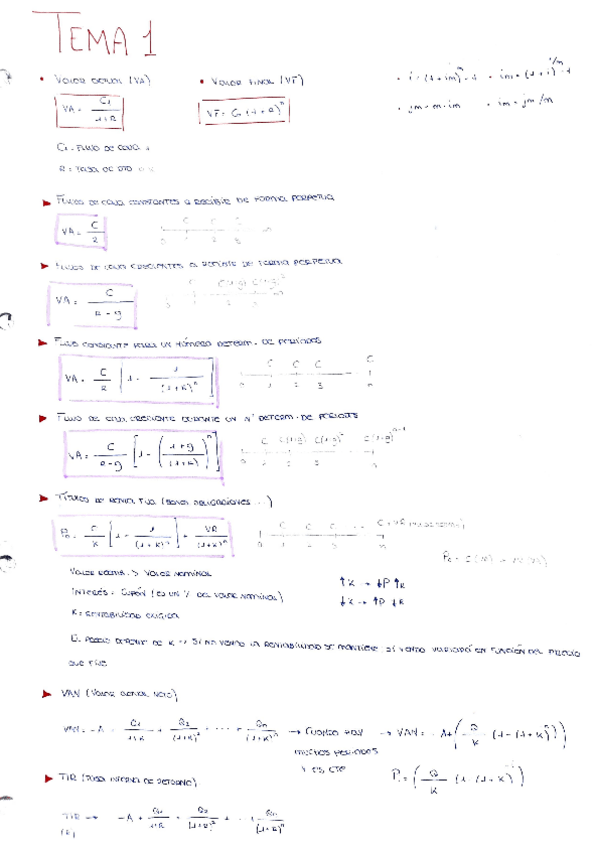 TEMA 1
• VALOR ACTUAL (VA)
VA = C₁ / 1+R
C₁ = FLUJO DE CAJA 1
R = TASA DE DTO
• VALOR FINAL (VF)
VF = C₀ (1+R)ⁿ
• i = (1+im)ᵐ - 1 • im = (1+i)^1/m - 1
• jm = m · im • im = jm/m
► FLUJOS DE CAJA CONSTANTES A RECIBIR DE FORMA PERPETUA
VA = C / R
0 1 2 3 ∞
C C C
► FLUJOS DE CAJA CRECIENTES A RECIBIR DE FORMA PERPETUA
VA = C / R - g
C C(1+g) C(1+g)²
► FLUJO CONSTANTE PARA UN NÚMERO DETERM. DE PERÍODOS
VA = C / R [1 - 1 / (1+R)ⁿ]
C C C C
0 1 2 3 n
► FLUJO DE CAJA CRECIENTE DURANTE UN Nº DETERM. DE PERIODOS
VA = C / R-g [1 - (1+g / (1+R))ⁿ]
C C(1+g) C(1+g)² C(1+g)ⁿ⁻¹
0 1 2 3 n
► TÍTULOS DE RENTA FIJA (BONOS, OBLIGACIONES ...)
P₀ = C / K [1 - 1 / (1+K)ⁿ] + VR / (1+K)ⁿ
C C C ... C+VR
0 1 2 3 n
VALOR NOMINAL
INTERÉS = CUPÓN (ES UN % DEL VALOR NOMINAL)
K = RENTABILIDAD EXIGIDA
↑K → ↓P ↑R
↓K → ↑P ↓R
SI NO VENDO LA RENTABILIDAD SE MANTIENE SI VENDO VARIARÁ EN FUNCIÓN DEL PRECIO
QUE FIJE
► VAN (VALOR ACTUAL NETO)
VAN = -A + Q₁ / 1+K + Q₂ / (1+K)² + ... + Qₙ / (1+K)ⁿ → CUANDO HAY MUCHOS PERIODOS Y ES CTE → VAN = -A + (Q / K · (1-(1+K)⁻ⁿ))
P₀ = (Q / K (1-(1+K)⁻ⁿ))
► TIR (TASA INTERNA DE RETORNO)
TIR → -A + Q₁ / 1+R + Q₂ / (1+R)² + ... + Qₙ / (1+R)ⁿ
(R)